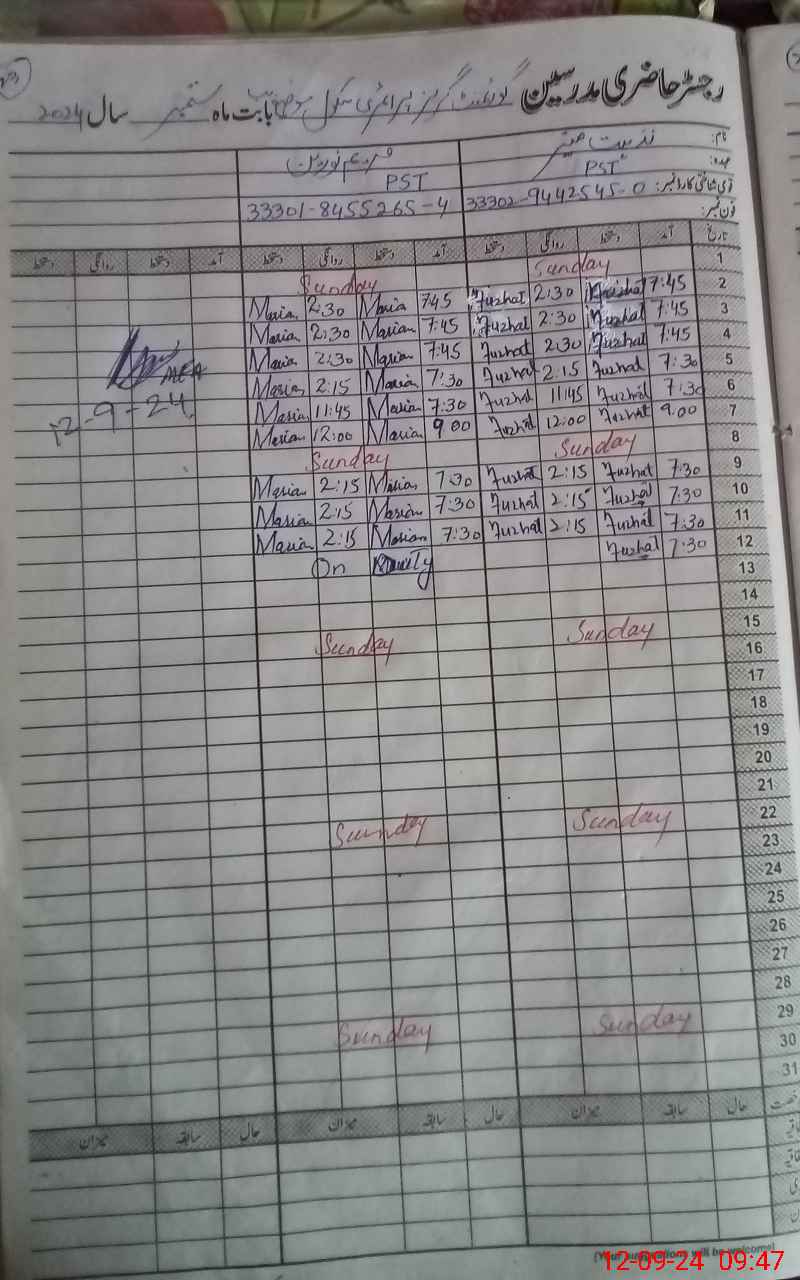 رجسٹر حاضری مدرسین گورنمنٹ گرلز پرائمری سکول بابت ماہ ستمبر سال 2024
نام:
عہدہ: PST PST
قومی شناختی کارڈ نمبر: 33302-9442545-0 33301-8455265-4
فون نمبر:
تاریخ آمد دستخط روانگی دستخط آمد دستخط روانگی دستخط آمد دستخط روانگی دستخط
1 Sunday Sunday
2 7:45 Nuzhat 2:30 Nuzhat 7:45 Maria 2:30 Maria
3 7:45 Nuzhat 2:30 Nuzhat 7:45 Mariam 2:30 Mariam
4 7:45 Nuzhat 2:30 Nuzhat 7:45 Mariam 2:30 Maria
5 7:30 Nuzhat 2:15 Nuzhat 7:30 Mariam 2:15 Mariam
6 7:30 Nuzhat 11:45 Nuzhat 7:30 Mariam 11:45 Mariam
7 9:00 Nuzhat 12:00 Nuzhat 9:00 Mariam 12:00 Mariam
8 Sunday Sunday
9 7:30 Nuzhat 2:15 Nuzhat 7:30 Mariam 2:15 Mariam
10 7:30 Nuzhat 2:15 Nuzhat 7:30 Mariam 2:15 Mariam
11 7:30 Nuzhat 2:15 Nuzhat 7:30 Mariam 2:15 Mariam
12 7:30 Nuzhat On Duty
MEA
12-9-24
13
14
15 Sunday Sunday
16
17
18
19
20
21
22 Sunday Sunday
23
24
25
26
27
28
29 Sunday Sunday
30
31
حال سابقہ میزان حال سابقہ میزان حال سابقہ میزان
(Your suggestions will be welcome)
12-09-24 09:47